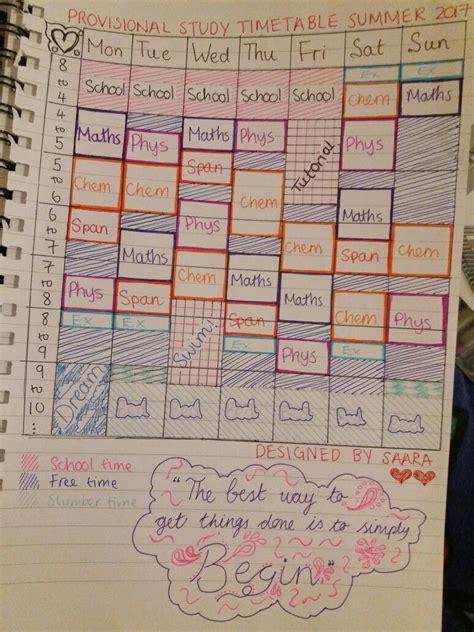 PROVISIONAL STUDY TIMETABLE SUMMER 2017
Mon Tue Wed Thu Fri Sat Sun
8 Ex Ex
to School School School School School Chem Maths
4
4 Maths Phys Maths Phys Tutorial Phys
to
5 Span
5 Chem Chem Chem
to Maths
6 Phys
6 Span Chem Span Chem
to Maths
7 Chem Maths
7 Maths
to Phys Span Chem Phys
8 Swim!
8 Ex Ex Span
to Ex Phys Ex
9
9 Dream
to
10
...
DESIGNED BY SAARA
School time
Free time
Slumber time
"The best way to
get things done is to simply
Begin"